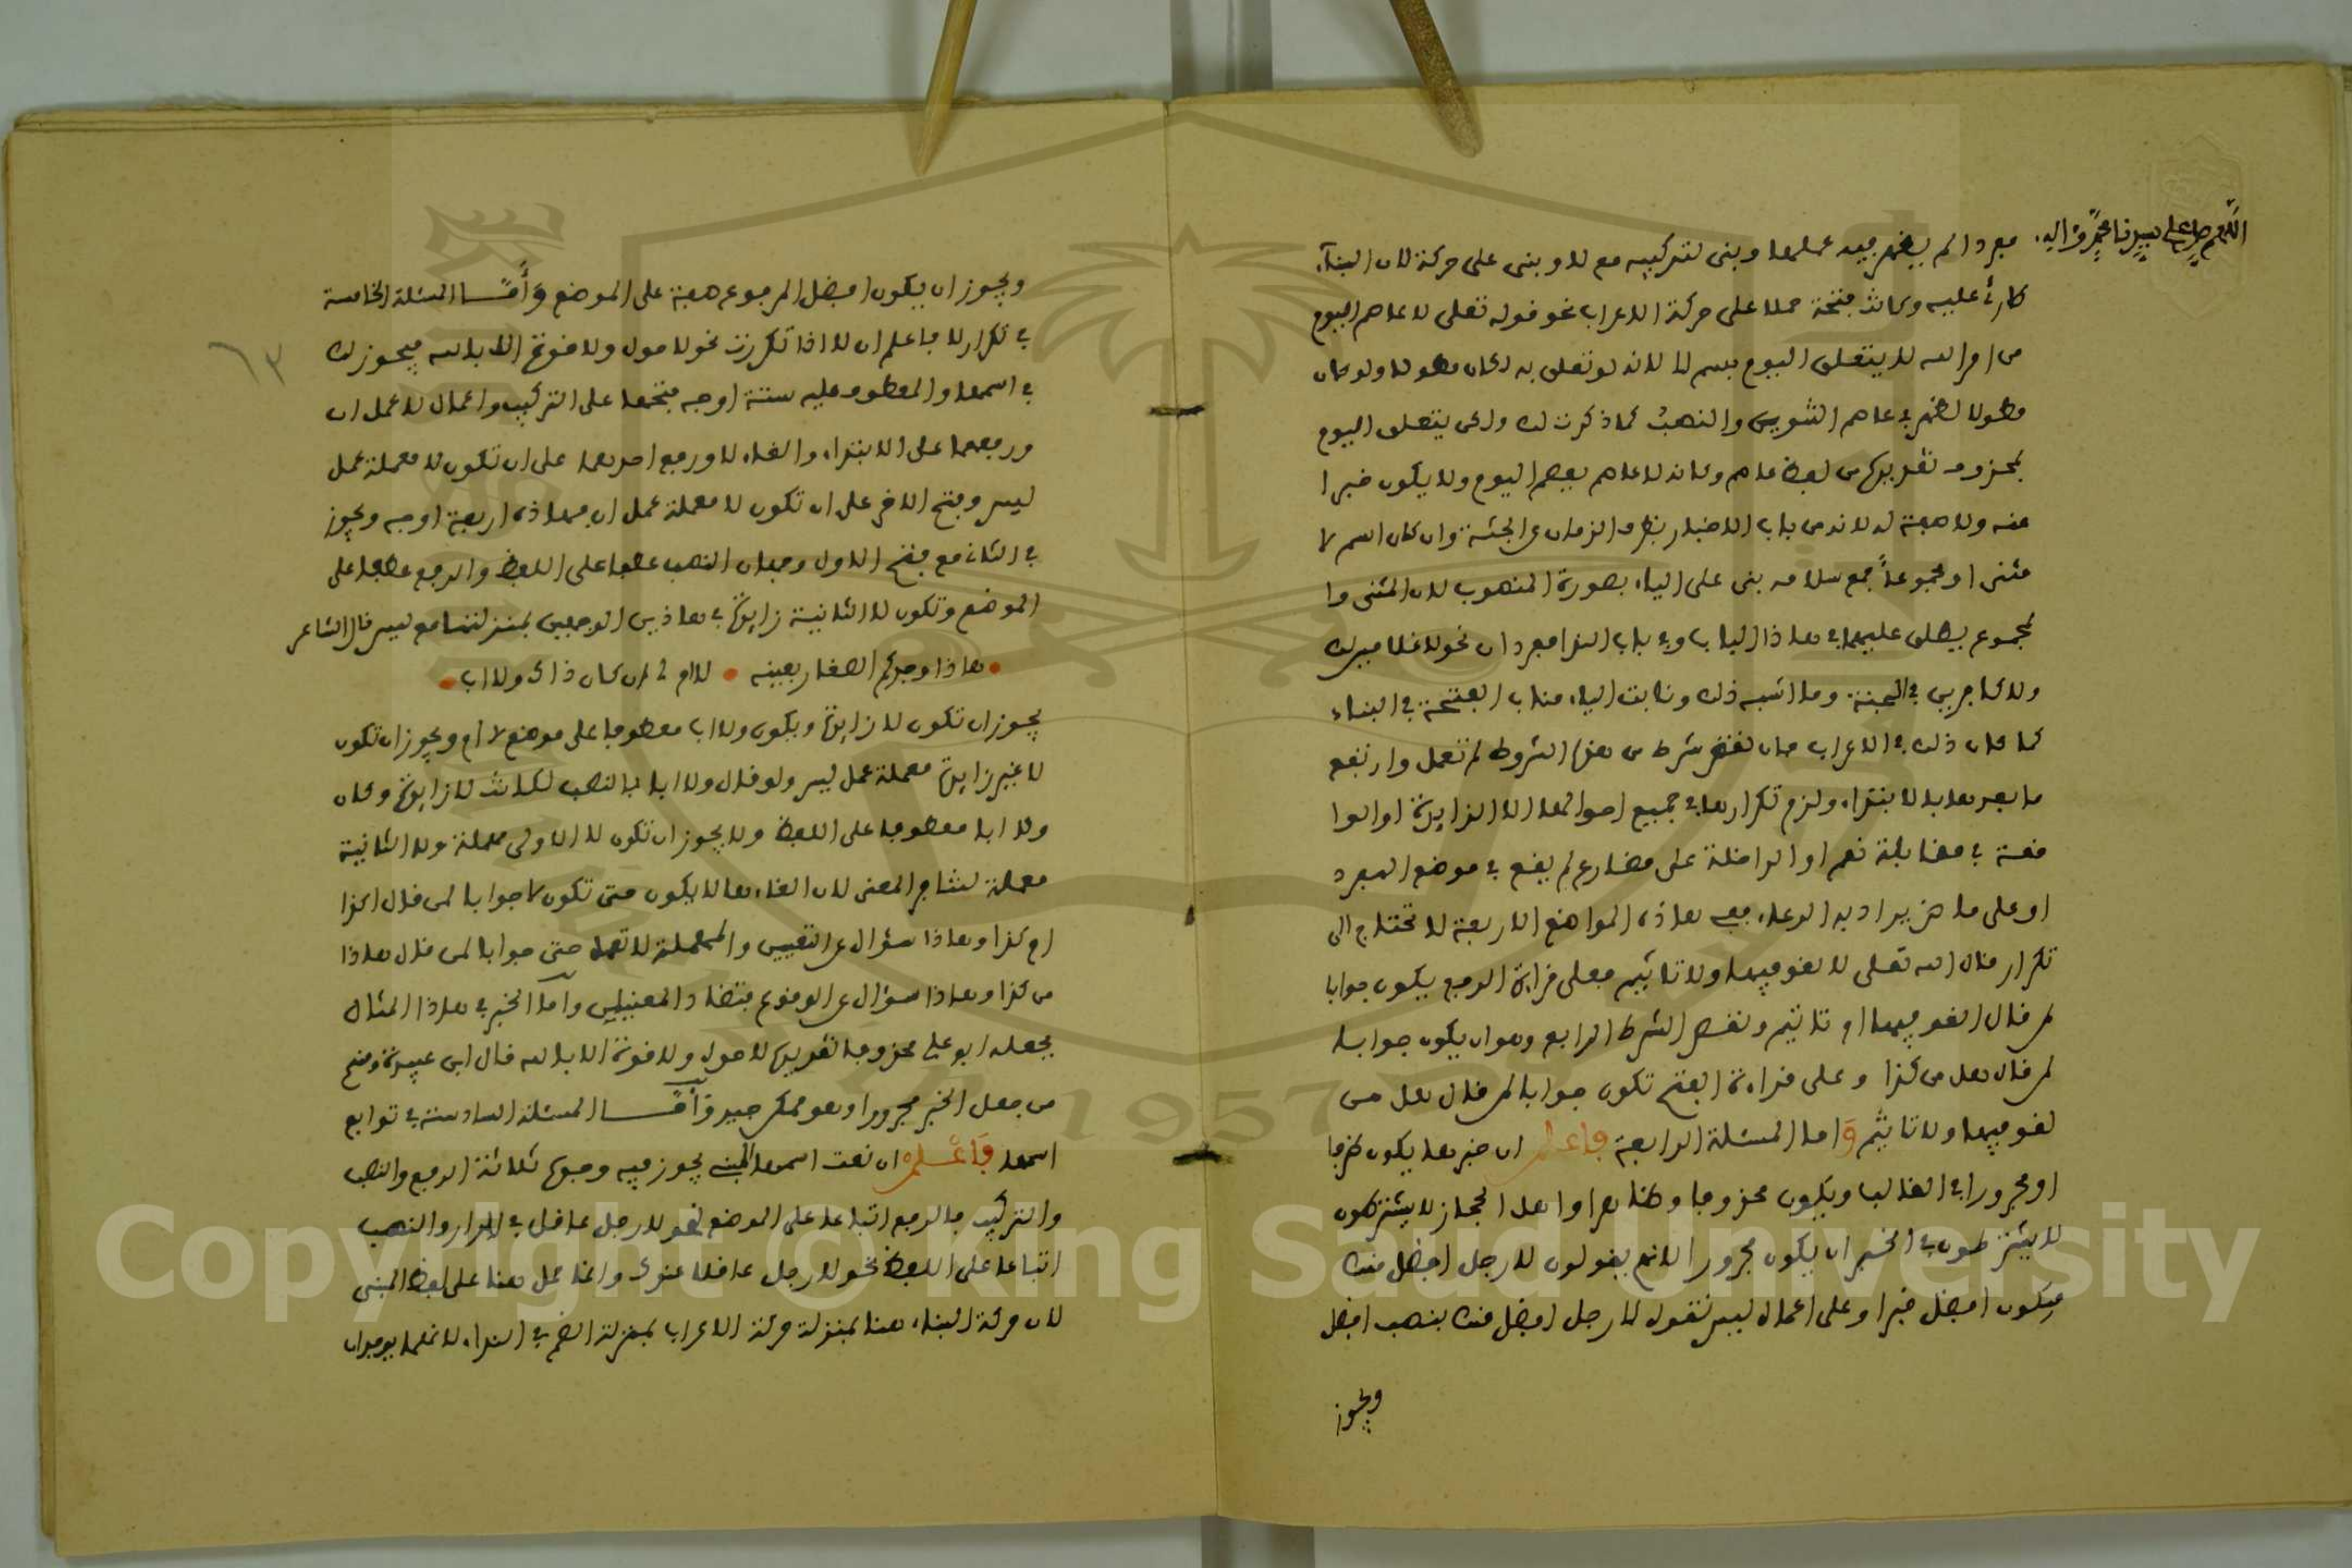 اللهم صل على سيدنا محمد وآله.
مفردا لم يظهر فيه عملها وبنى لتركيبه مع لا وبنى على حركة لان البناء
طارئ عليه وكانت فتحة حملا على حركة الاعراب نحو قوله تعلى لا عاصم اليوم
من امر الله لا يتعلق اليوم باسم لا لانه لو تعلق به لكان مطولا ولو كان
مطولا لظهر في عاصم التنوين والنصب كما ذكرت لك ولكن يتعلق اليوم
بمحذوف تقديره من لفظ عاصم وكانه لا عاصم يعصم اليوم ولا يكون خبرا
عنه ولا صفة له لانه من باب الاخبار بظرف الزمان عن الجثة وان كان اسم لا
مثنى او مجموعا جمع سلامة بنى على الياء بصورة المنصوب لان المثنى وا
لمجموع يطلق عليهما في هاذا الباب وفي باب الندا مفردان نحو لا غلامين لك
ولا كاجرين في الجنة وما اشبه ذلك ونابت الياء مناب الفتحة في البناء
كما كان ذلك في الاعراب فان نقص شرط من هذه الشروط لم تعمل وارتفع
ما بعدها بالابتداء ولزم تكرارها في جميع احوالها الا الزايدة او الوا
قعة في مقابلة نعم او الداخلة على مضارع لم يقع في موضع المفرد
او على ماض يراد به الدعاء ففي هاذه المواضع الاربعة لا تحتاج الى
تكرار قال الله تعلى لا لغو فيها ولا تاثيم فعلى قراءة الرفع يكون جوابا
لمن قال الغو فيها او تاثيم ونقص الشرط الرابع وهو ان يكون جوابا
لمن قال هل من كذا وعلى قراءة الفتح تكون جوابا لمن قال هل من
لغو فيها ولا تاثيم واما المسئلة الرابعة فاعلم ان خبرها يكون ظرفا
او مجرورا في الغالب ويكون محذوفا وظاهرا واهل الحجاز لا يشترطون
لا يشترطون في الخبر ان يكون مجرورا لانهم يقولون لا رجل افضل منك
فيكون افضل خبرا وعلى اعمال ليس نقول لا رجل افضل منك بنصب افضل
ويجوز
٦٣
ويجوز ان يكون افضل المرفوع صفة على الموضع وأما المسئلة الخامسة
في تكرار لا فاعلم ان لا اذا تكررت نحو لا حول ولا قوة الا بالله فيجوز لك
في اسمها والمعطوف عليه ستة اوجه فتحهما على التركيب واعمال لا عمل ان
ورفعهما على الابتداء والغاء لا ورفع احدهما على ان تكون لا معملة عمل
ليس وفتح الاخر على ان تكون لا معملة عمل ان فهاذه اربعة اوجه ويجوز
في الثاني مع فتح الاول وجهان النصب عطفا على اللفظ والرفع عطفا على
الموضع وتكون لا الثانية زايدة في هاذين الوجهين بمنزلتها مع ليس قال الشاعر
هاذا وجدكم الصغار بعينه • لا ام لي ان كان ذاك ولا اب •
يجوز ان تكون لا زايدة ويكون ولا اب معطوفا على موضع لا ام ويجوز ان تكون
لا غير زايدة معملة عمل ليس ولو قال ولا ابا بالنصب لكانت لا زايدة وكان
ولا ابا معطوفا على اللفظ ولا يجوز ان تكون لا الاولى مهملة ولا الثانية
معملة لتنافي المعنى لان الغاءها لا يكون حتى تكون لا جوابا لمن قال اكذا
ام كذا وهاذا سؤال عن التعيين والمعملة لا تعمل حتى جوابا لمن قال هاذا
من كذا وهاذا سؤال عن الوقوع فتضاد المعنيين واما الخبر في هاذا المثال
فجعله ابو علي محذوفا تقديره لا حول ولا قوة الا بالله قال ابن عبيدة ومنهم
من جعل الخبر مجرورا وهو ممكن جيد وأما المسئلة السادسة في توابع
اسمها فاعلم ان نعت اسمها المبني يجوز فيه وجوه ثلاثة الرفع والنصب
والتركيب فالرفع اتباعا على الموضع نحو لا رجل عاقل في الدار والنصب
اتباعا على اللفظ نحو لا رجل عاقلا عندك وانما حمل هنا على لفظ المبني
لان حركة البناء هنا بمنزلة حركة الاعراب بمنزلة الضم في النداء لانهما يوجدان